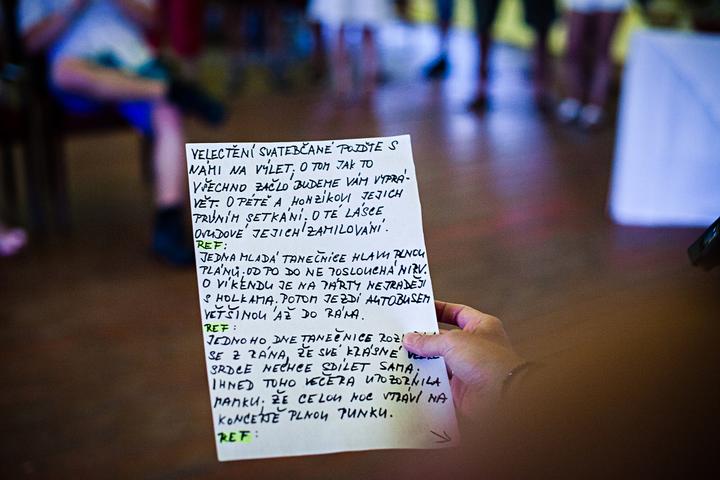 VELECTĚNÍ SVATEBČANÉ POJĎTE S
NÁMI NA VÝLET. O TOM JAK TO
VŠECHNO ZAČLO BUDEME VÁM VYPRÁ-
VĚT. O PÉTĚ A HONZÍKOVI JEJICH
PRVNÍM SETKÁNÍ. O TÉ LÁSCE
OSUDOVÉ JEJICH ZAMILOVÁNÍ.
REF:
JEDNA MLADÁ TANEČNICE HLAVU PLNOU
PLÁNŮ. OD PO DO NE POSLOUCHÁ NIRV.
O VÍKENDU JE NA PÁRTY NEJRADĚJI
S HOLKAMA. POTOM JEZDÍ AUTOBUSEM
VĚTŠINOU AŽ DO RÁNA.
REF:
JEDNOHO DNE TANEČNICE
SE Z RÁNA, ŽE SVÉ KRÁSNÉ
SRDCE NECHCE SDÍLET SAMA.
IHNED TOHO VEČERA UPOZORNILA
MAMKU. ŽE CELOU NOC STRÁVÍ NA
KONCERTĚ PLNOU PUNKU.
REF: